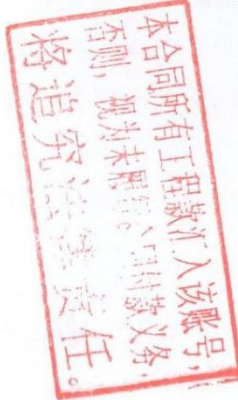 本合同所有工程款汇入该账号,
否则, 视为未履行付款义务,
将追究法律责任。